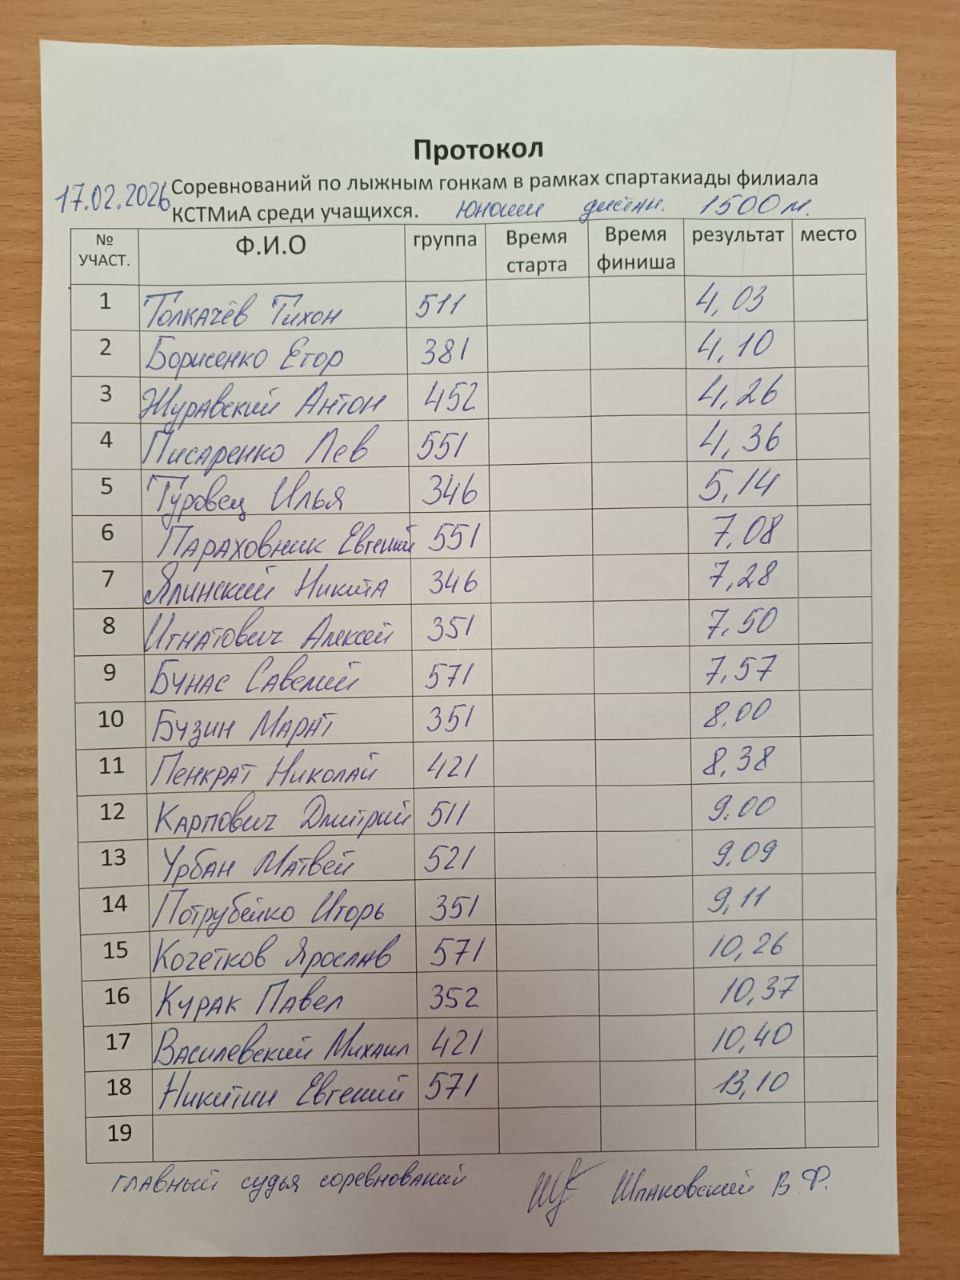 Протокол
17.02.2026 Соревнований по лыжным гонкам в рамках спартакиады филиала
КСТМиА среди учащихся. юноши дистан. 1500 м.
№ УЧАСТ. Ф.И.О группа Время старта Время финиша результат место
1 Толкачёв Тихон 511 4,03
2 Борисенко Егор 381 4,10
3 Журавский Антон 452 4,26
4 Писаренко Лев 551 4,36
5 Туровец Илья 346 5,14
6 Параховник Евгений 551 7,08
7 Ялинский Никита 346 7,28
8 Игнатович Алексей 351 7,50
9 Бунас Савелий 571 7,57
10 Бузин Марат 351 8,00
11 Пенкрат Николай 421 8,38
12 Карпович Дмитрий 511 9,00
13 Урбан Матвей 521 9,09
14 Потрубейко Игорь 351 9,11
15 Кочетков Ярослав 571 10,26
16 Курак Павел 352 10,37
17 Василевский Михаил 421 10,40
18 Никитин Евгений 571 13,10
19
главный судья соревнований Шпаковский В.Ф.